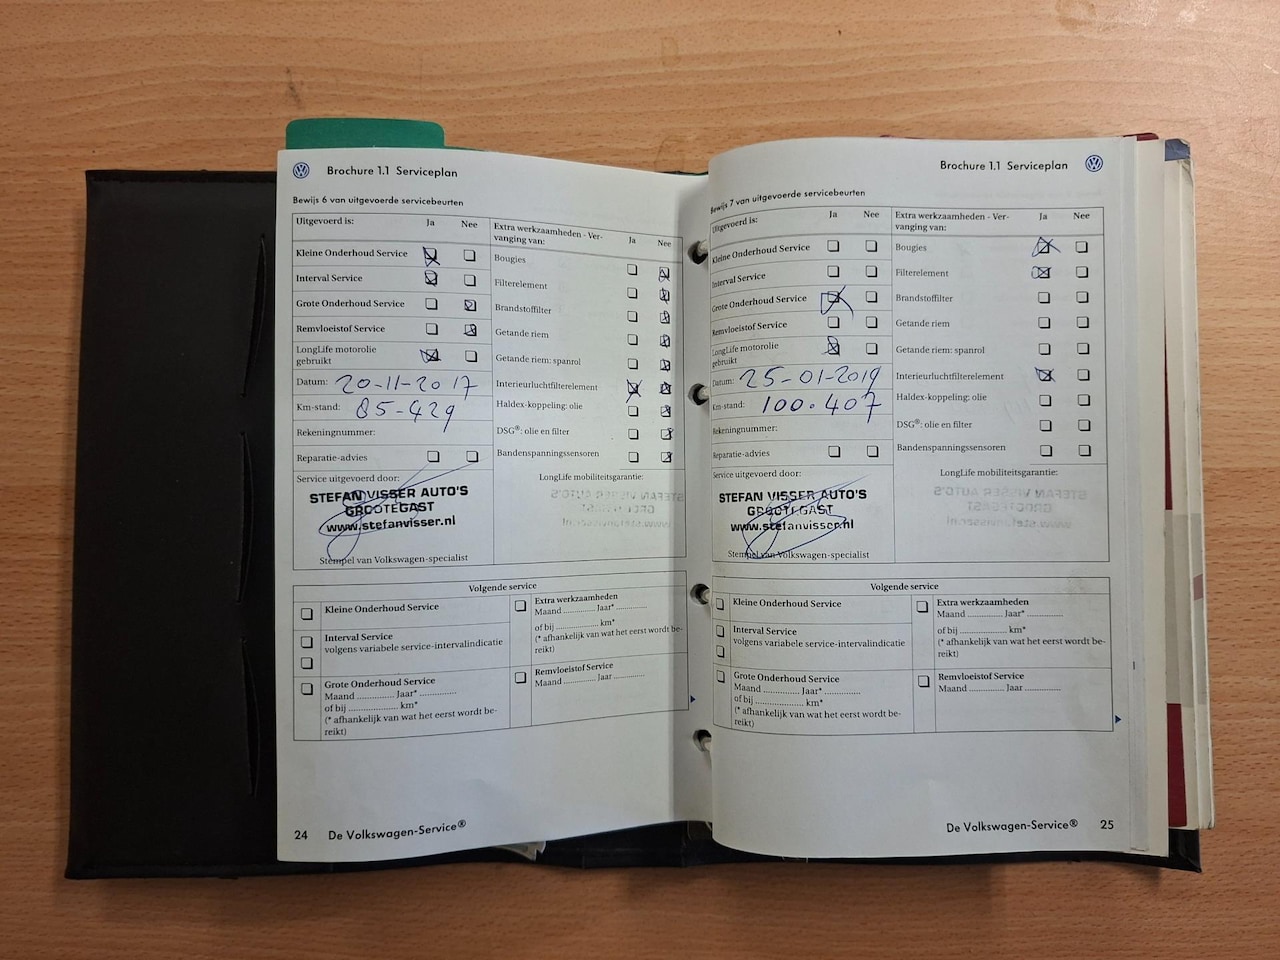 Brochure 1.1 Serviceplan
Bewijs 6 van uitgevoerde servicebeurten
Uitgevoerd is: Ja Nee
Kleine Onderhoud Service
Interval Service
Grote Onderhoud Service
Remvloeistof Service
LongLife motorolie
gebruikt
Datum: 20-11-2017
Km-stand: 85-429
Rekeningnummer:
Reparatie-advies
Service uitgevoerd door:
STEFAN VISSER AUTO'S
GROOTEGAST
www.stefanvisser.nl
Stempel van Volkswagen-specialist
Extra werkzaamheden - Ver-
vanging van: Ja Nee
Bougies
Filterelement
Brandstoffilter
Getande riem
Getande riem: spanrol
Interieurluchtfilterelement
Haldex-koppeling: olie
DSG®: olie en filter
Bandenspanningssensoren
LongLife mobiliteitsgarantie:
Volgende service
Kleine Onderhoud Service
Interval Service
volgens variabele service-intervalindicatie
Grote Onderhoud Service
Maand ............ Jaar* ..............
of bij .................. km*
(* afhankelijk van wat het eerst wordt be-
reikt)
Extra werkzaamheden
Maand ............ Jaar* ............
of bij ................ km*
(* afhankelijk van wat het eerst wordt be-
reikt)
Remvloeistof Service
Maand ............ Jaar ............
24 De Volkswagen-Service®
Brochure 1.1 Serviceplan
Bewijs 7 van uitgevoerde servicebeurten
Uitgevoerd is: Ja Nee
Kleine Onderhoud Service
Interval Service
Grote Onderhoud Service
Remvloeistof Service
LongLife motorolie
gebruikt
Datum: 25-01-2019
Km-stand: 100.407
Rekeningnummer:
Reparatie-advies
Service uitgevoerd door:
STEFAN VISSER AUTO'S
GROOTEGAST
www.stefanvisser.nl
Stempel van Volkswagen-specialist
Extra werkzaamheden - Ver-
vanging van: Ja Nee
Bougies
Filterelement
Brandstoffilter
Getande riem
Getande riem: spanrol
Interieurluchtfilterelement
Haldex-koppeling: olie
DSG®: olie en filter
Bandenspanningssensoren
LongLife mobiliteitsgarantie:
Volgende service
Kleine Onderhoud Service
Interval Service
volgens variabele service-intervalindicatie
Grote Onderhoud Service
Maand ............ Jaar* ..............
of bij .................. km*
(* afhankelijk van wat het eerst wordt be-
reikt)
Extra werkzaamheden
Maand ............ Jaar* ............
of bij .................. km*
(* afhankelijk van wat het eerst wordt be-
reikt)
Remvloeistof Service
Maand ............ Jaar ............
De Volkswagen-Service® 25